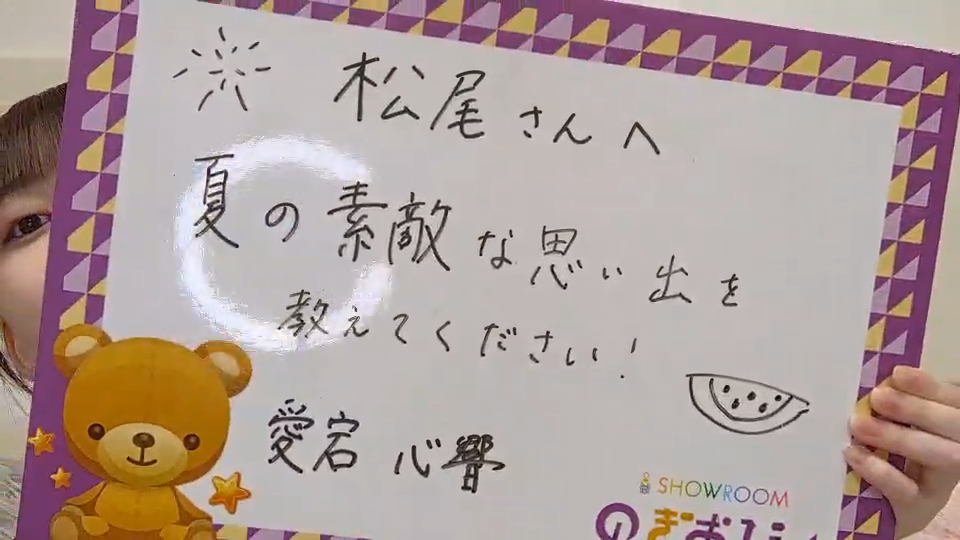 松尾さんへ
夏の素敵な思い出を
教えてください!
愛宕 心響
SHOWROOM
のぎおび